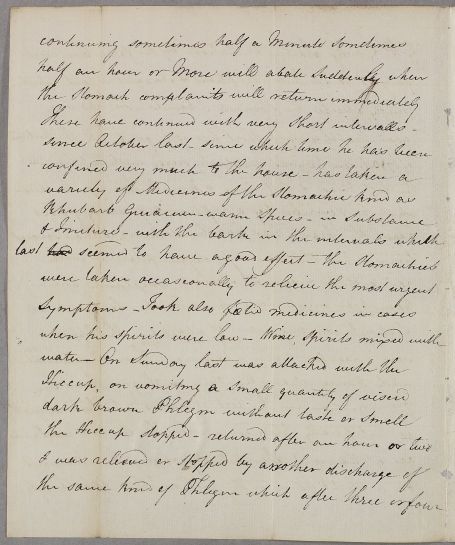 continuing sometimes half a Minute sometimes
half an hour or More will abate Suddenly when
the Stomach complaints will return immediately
These have continued with very Short intervalls -
since October last - since which time he has been
confined very much to the house - has taken a
variety of Medicines of the Stomachic kind as
Rhubarb Guaicum - warm Spices - in Substance
& tincture - with the bark in the intervals which
last had seemed to have a good effect - the Stomachics
were taken occasionally to relieve the most urgent
Symptoms - Took also fœtid medicines in cases
when his spirits were low - Wine, Spirits mixed with
water - On Sunday last was attacked with the
Hiccup, on vomiting a small quantity of viscid
dark brown Phlegm without taste or Smell
the Hiccup stopped - returned after an hour or two
& was relieved or stopped by another discharge of
the same kind of Phlegm which after three or four